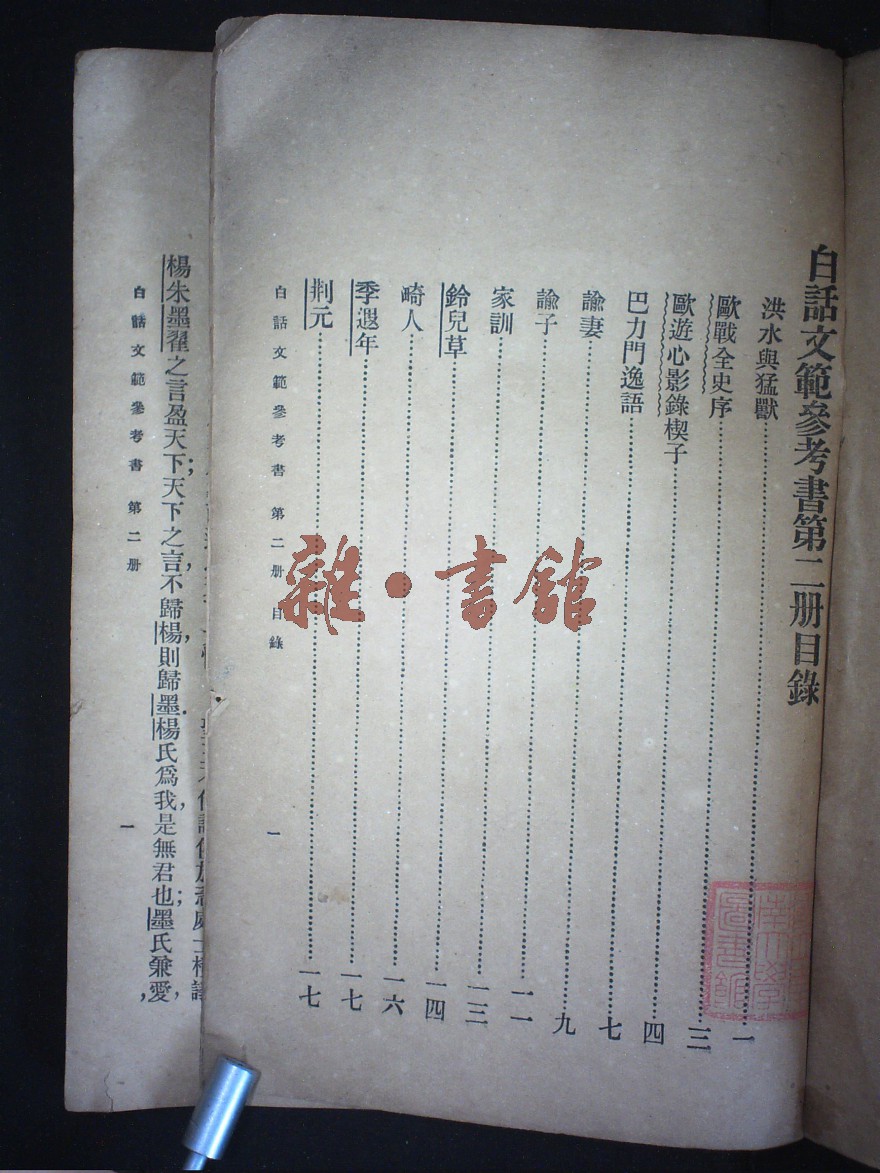 白話文範參考書第二册目錄
洪水與猛獸……一
歐戰全史序……三
歐遊心影錄楔子……四
巴力門逸語……七
諭妻……九
諭子……一一
家訓……一三
鈴兒草……一四
畸人……一六
季遐年……一七
荆元……一七
白話文範參考書 第二册 目錄 一
楊朱墨翟之言盈天下;天下之言,不歸楊,則歸墨.楊氏爲我,是無君也;墨氏兼愛,
白話文範參考書 第二册 一
雜·書館
南大學
圖書館